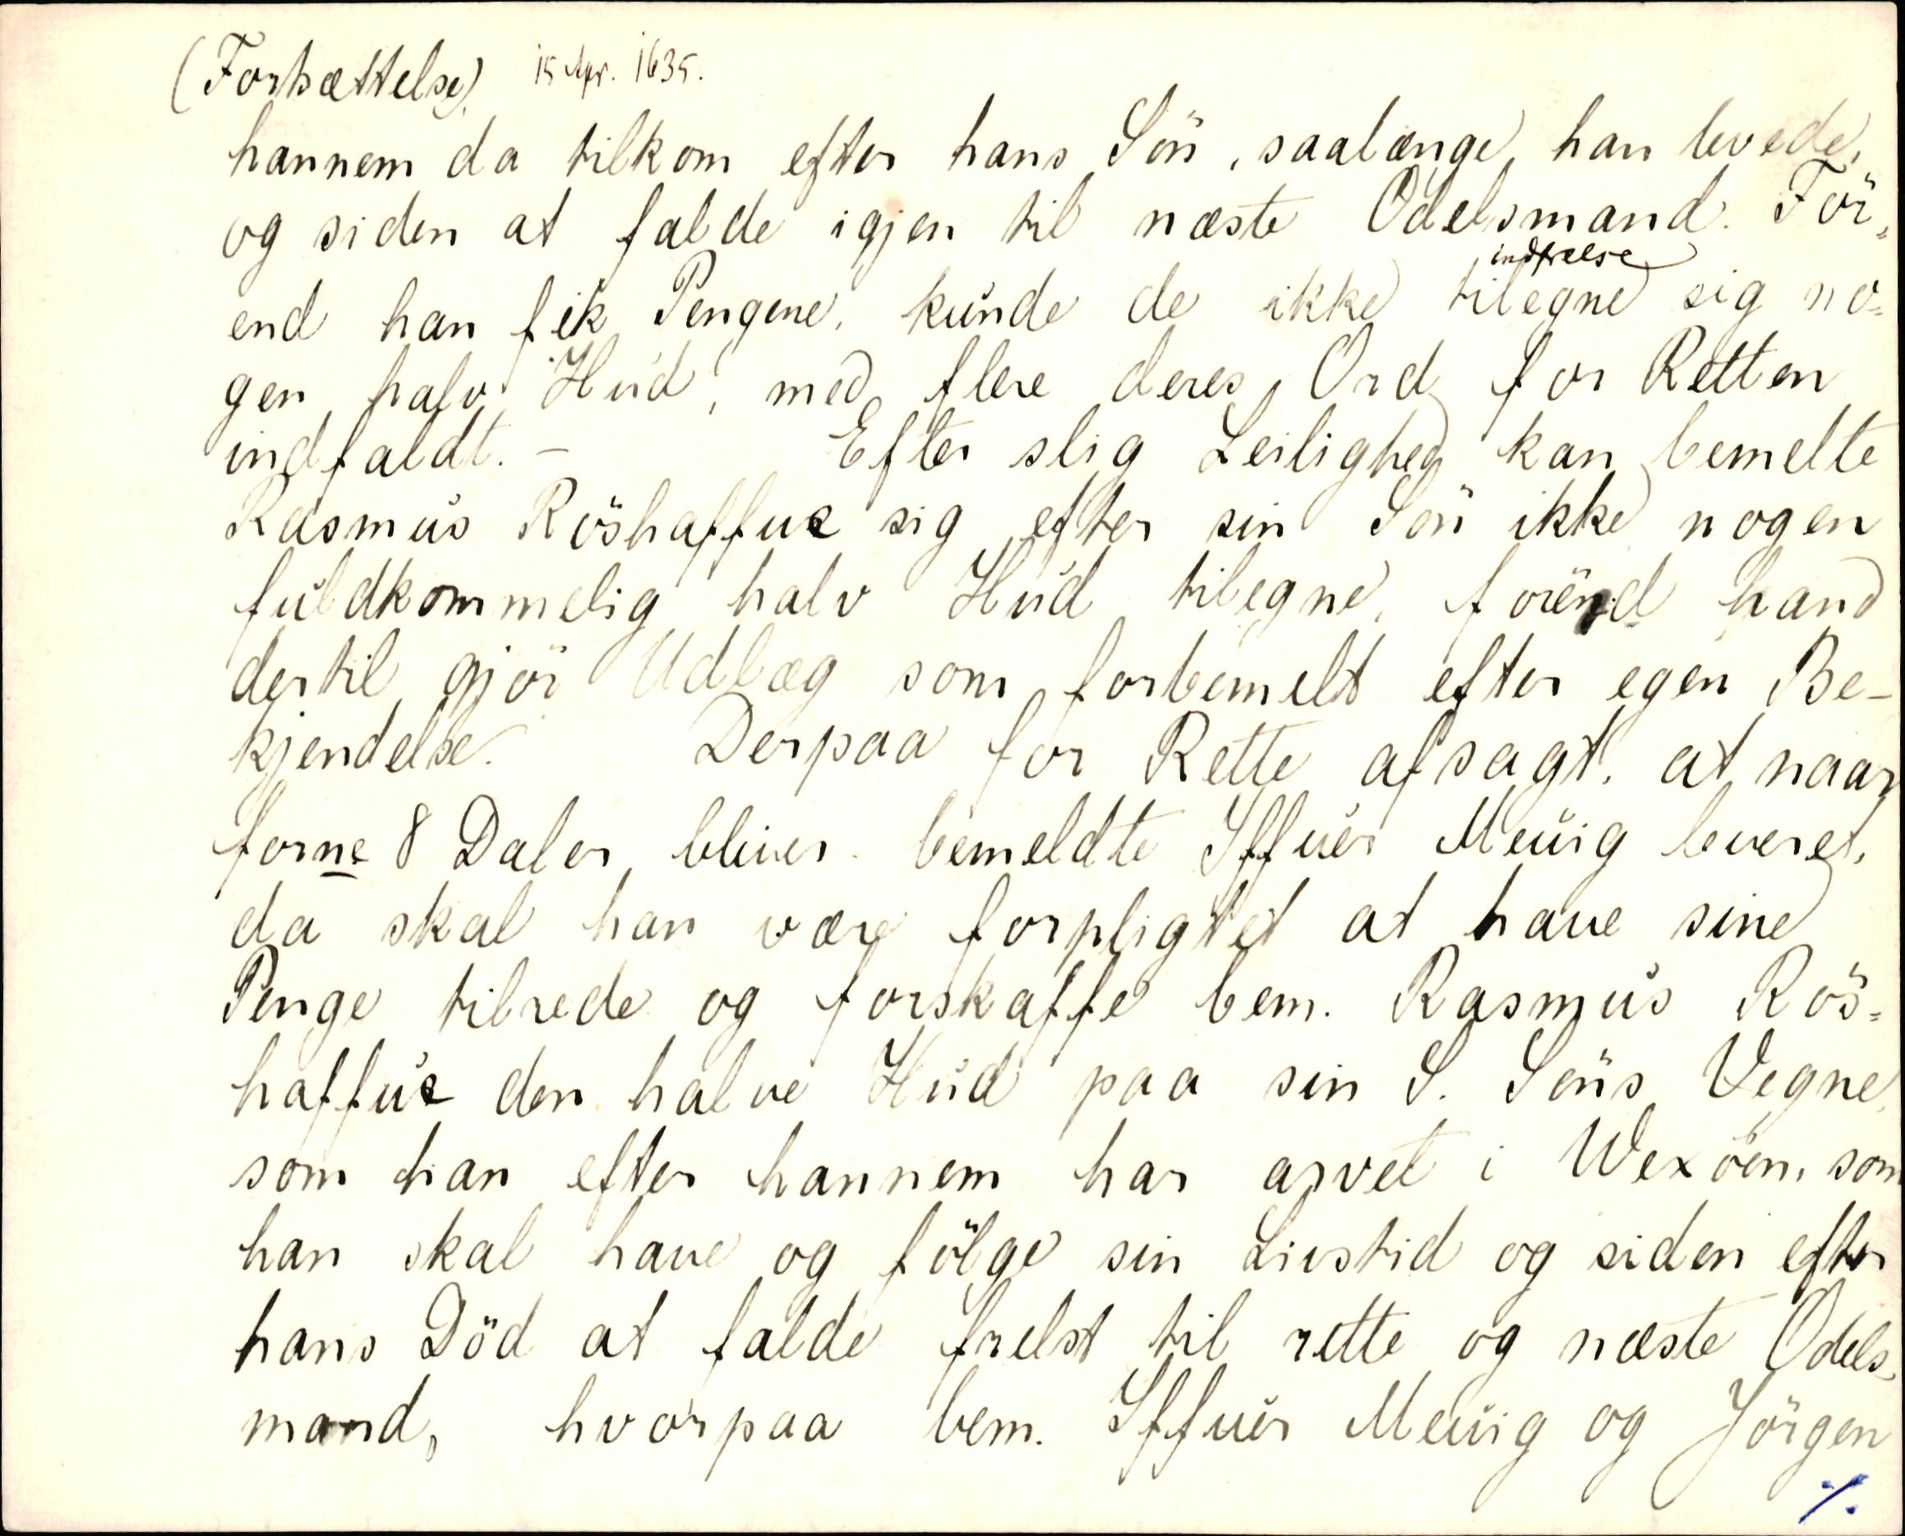 (Fortsættelse). 15 Apr. 1635.
hannem da tilkom efter hans Sön, saalænge han levede,
og siden at falde igjen til næste Odelsmand. För-
indfrelse
end han fik Pengene, kunde de ikke tilegne sig no-
gen halv Hud, med flere deres Ord for Retten
indfaldt. – Efter slig Leilighed kan bemelte
Rasmus Röshaffue sig efter sin Sön ikke nogen
fuldkommelig halv Hud tilegne, förend hand
dertil gjör Udlæg som forbemelt efter egen Be-
kjendelse. Derpaa for Rette afsagt, at naar
forne 8 Daler bliver bemeldte Iffuer Meuig leveret,
da skal han være forpligtet at have sine
Penge tilrede og forskaffe bem. Rasmus Rös-
haffue den halve Hud paa sin S. Söns Vegne,
som han efter hannem har arvet i Wexöen, som
han skal have og fölge sin Livstid og siden efter
hans Död at falde frelst til rette og næste Odels-
mand, hvorpaa bem. Iffuer Meuig og Jörgen
·/.